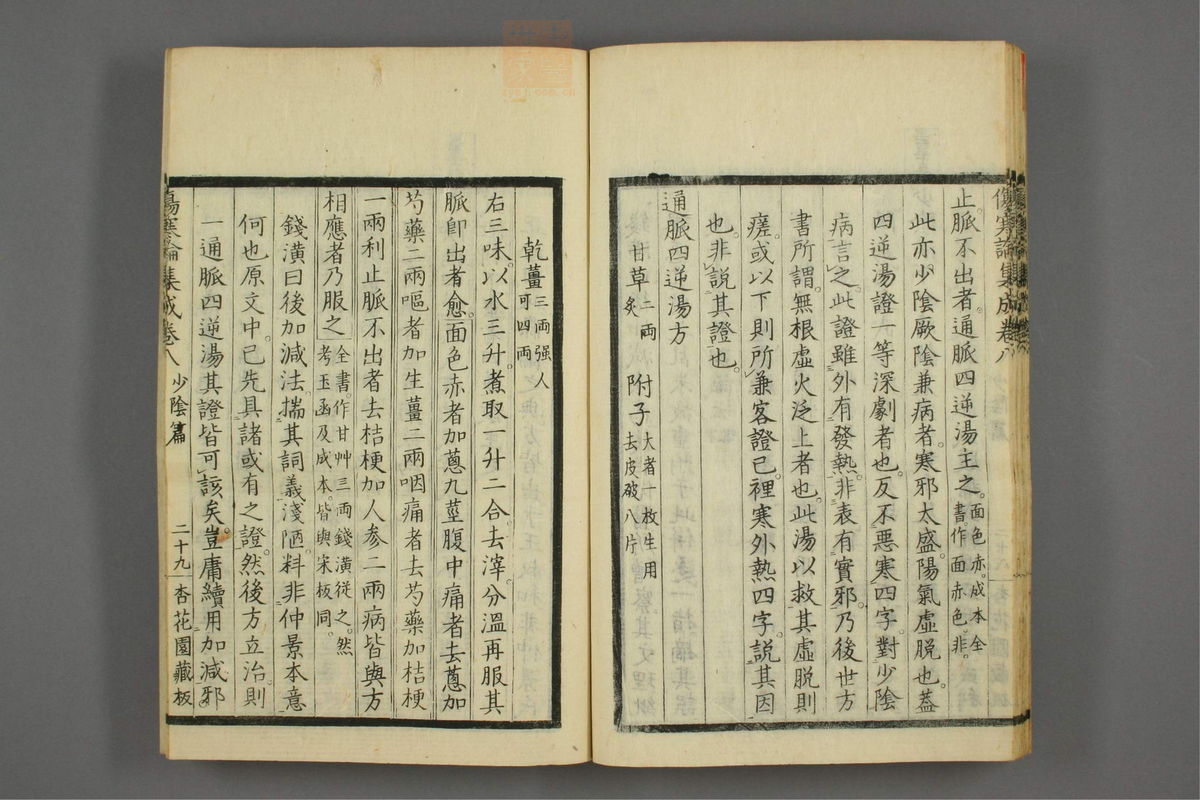 傷寒論集成卷八
止脈不出者通脈四逆湯主之面色赤成本全書作面赤色非
此亦少陰厥陰兼病者寒邪太盛陽氣虛脫也蓋
四逆湯證一等深劇者也反不惡寒四字對少陰
病言之此證雖外有發熱非表有實邪乃後世方
書所謂無根虛火泛上者也此湯以救其虛脫則
瘥或以下則所兼客證已裡寒外熱四字說其因
也非說其證也
通脈四逆湯方
甘草二兩炙 附子大者一枚生用去皮破八片
乾薑三兩强人可四兩
右三味以水三升煮取一升二合去滓分溫再服其
脈卽出者愈面色赤者加蔥九莖腹中痛者去蔥加
芍藥二兩嘔者加生薑二兩咽痛者去芍藥加桔梗
一兩利止脈不出者去桔梗加人參二兩病皆與方
相應者乃服之全書作甘艸三兩錢潢從之然考玉函及成本皆與宋板同
錢潢曰後加減法揣其詞義淺陋料非仲景本意
何也原文中已先具諸或有之證然後方立治則
一通脈四逆湯其證皆可該矣豈庸續用加減邪
傷寒論集成卷八 少陰篇 二十九 杏花園藏板